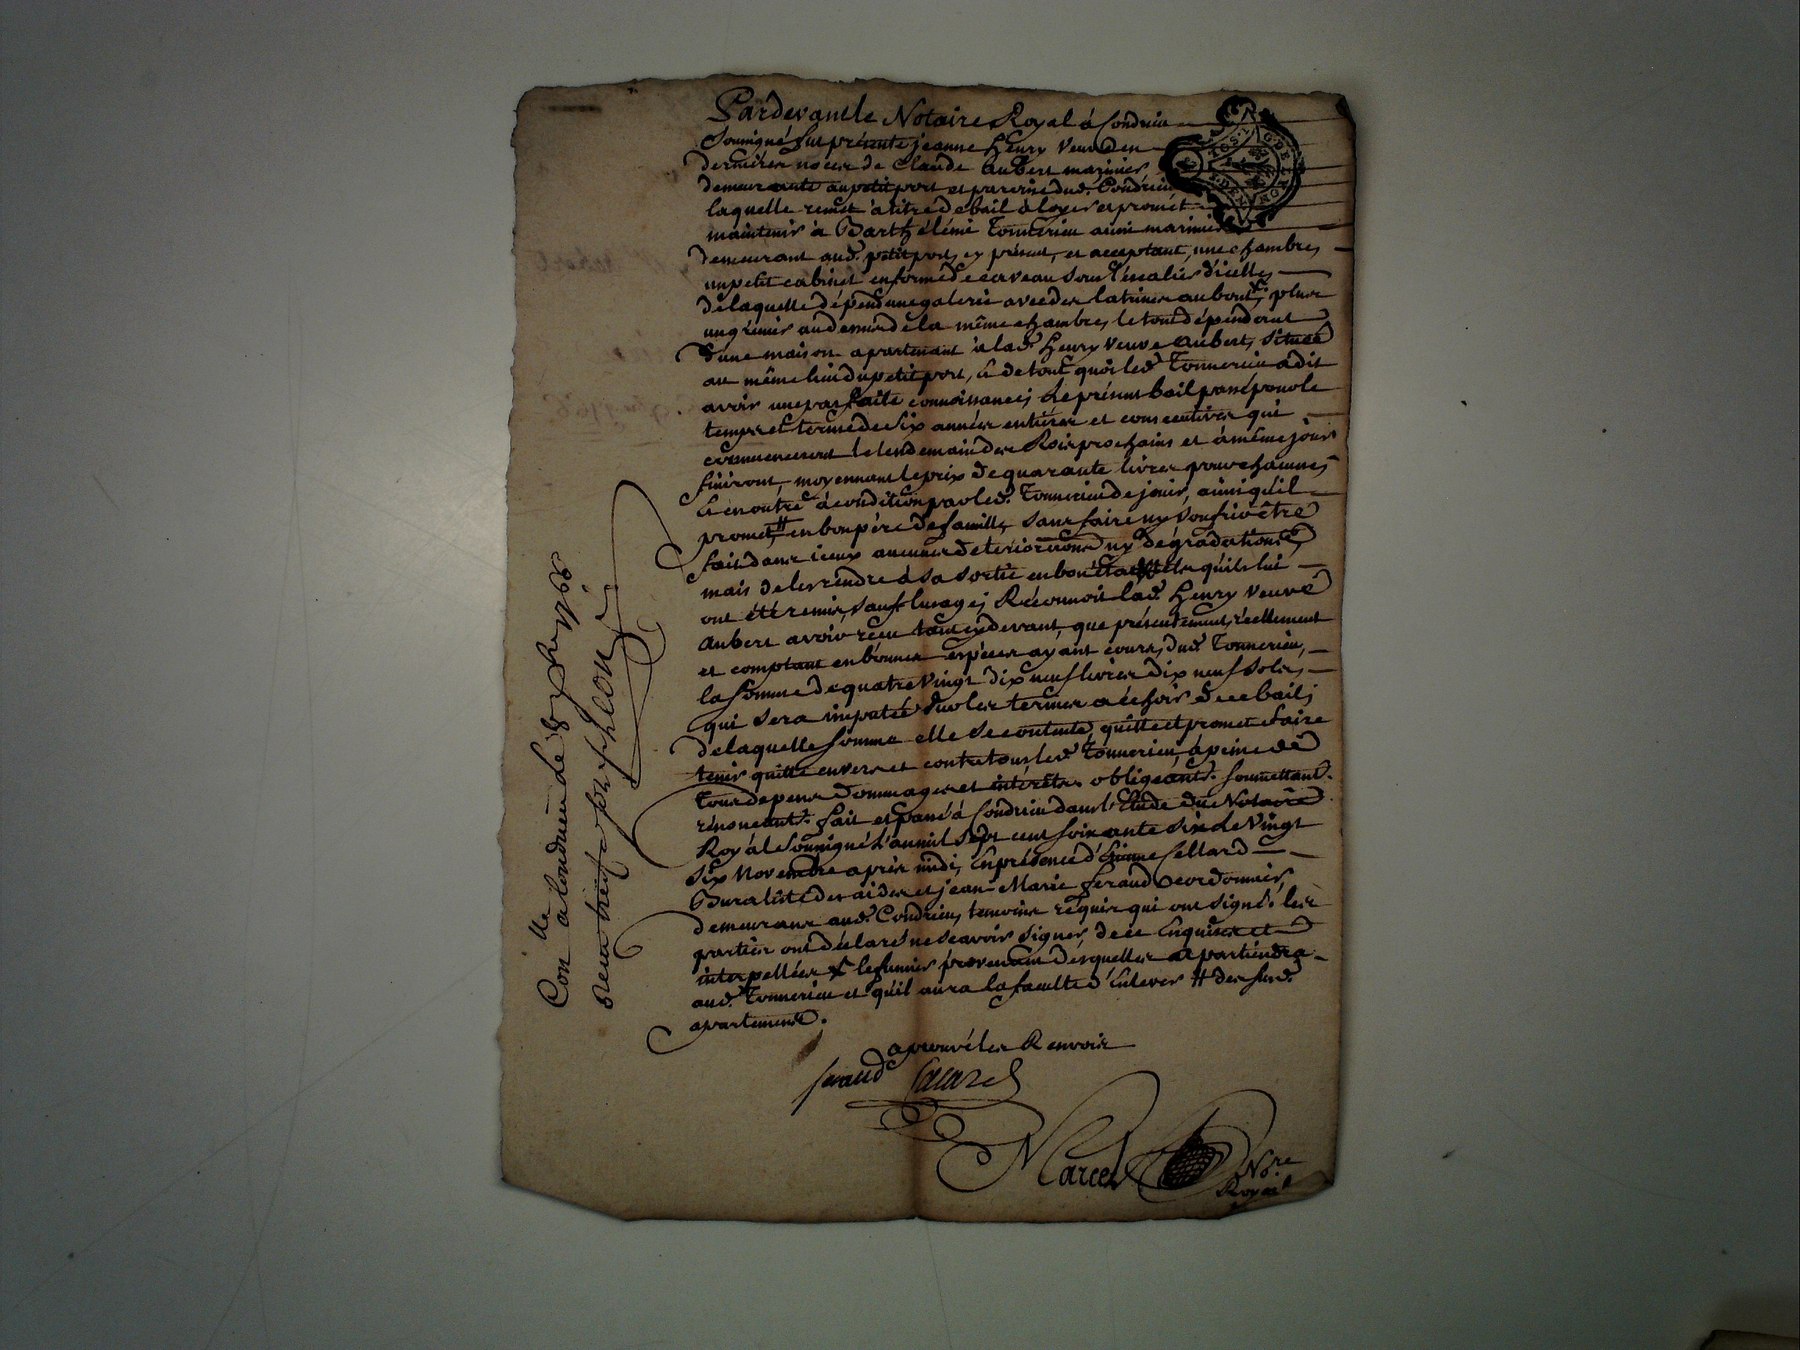 Pardevant le Notaire Royal à Condrieu
Soussigné fut présente jeanne Henry Veuve en
derniéres nôces de Claude Aubert marinier,
demeurante au petit port et paroisse dud. Condrieu
laquelle remet à titre de bail à loyer et promét
maintenir à Barthélémie Tonnerieu aussi marinier
demeurant aud. petit port, cy présent, et acceptant, une chambre,
un petit cabinet en forme de caveau sous l'éscalier d'icelle,
de laquelle dépend une galerie avec des latrines au bout; plus
un grénier au dessus de la même chambre, le tout dépendant
d'une maison apartenant à lad. Henry Veuve Aubert, située
au même lieu du petit port, & de tout quoi led. Tonnerieu a dit
avoir une parfaite connoissance; Le présent bail passé pour le
temps et terme de Six années entieres et consecutives qui
commenceront le lendemain des Rois prochains et à même jour
finiront, moyennant le prix de quarante livres pour chacune;
& en outre à condition par led. Tonnerieu de jouir, ainsi qu'il
promet # en bon pére de famille, sans faire ny Souffrir être
fait dans iceux aucunes deteriorations ny dégradations,
mais de les rendre à sa sortie en bon état tels qu'ils lui
ont été remis, sauf l'usage; Réconnoit lad. Henry Veuve
Aubert avoir réçu tant cy devant, que présentement, réellement
et comptant en bonnes espéces ayant cours, dud. Tonnerieu,
la Somme de quatre Vingt dix neuf livres dix neuf Sols,
qui sera imputée sur les termes à échoir de ce bail;
de laquelle somme elle Se contente, quitte et promet faire
tenir quitte envers et contre tous led. Tonnerieu, à peine de
tous dépens dommages et intérêts. obligeants. Soumettant.
rénonceant. fait et passé à Condrieu dans l'Etude du Notaire
Royal Soussigné L'an mil Sept cent soixante six Le Vingt
Six Novembre après midi, En présence d'Etienne Cellard
Buraliste des aides et jean-Marie Feraud Cordonnier,
demeurans aud. Condrieu, temoins réquis qui ont signé; les
parties ont déclaré ne scavoir signer, de ce Enquises et
interpellées # les fumiers provenant desquelles apartiendra
aud. Tonnerieu et qu'il aura la faculté d'Enlever # des susd.
apartements.
aprouvé les Renvois
feraud Cellard
Marcel Nore
Royal
Con.lle a Condrieu le 8